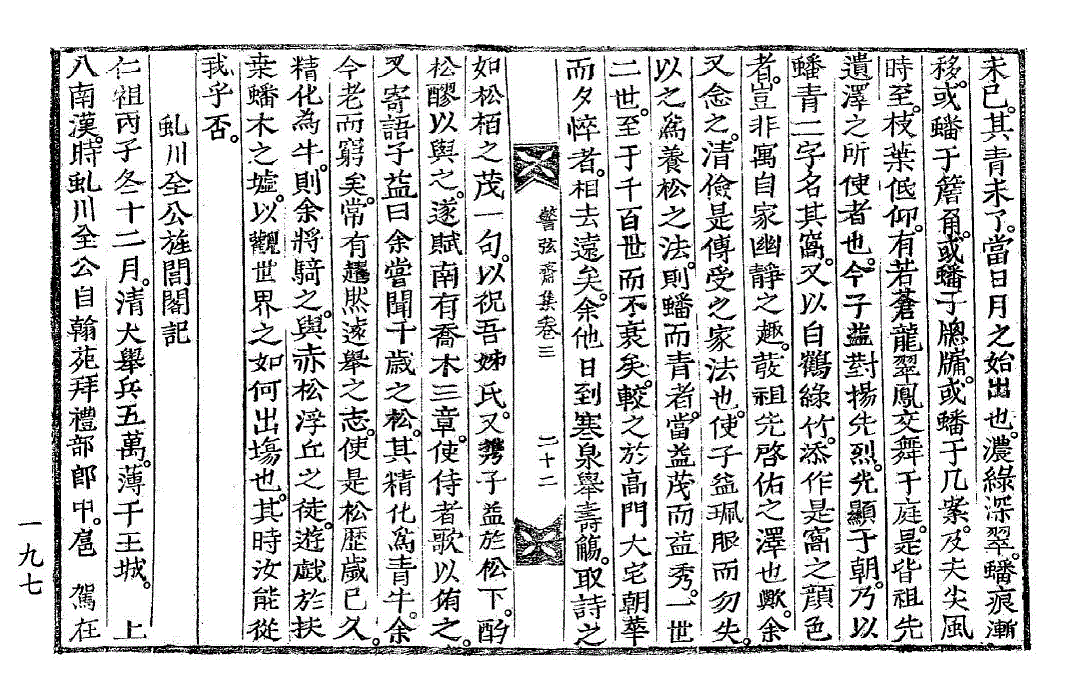 未已。其青未了。當日月之始出也。濃綠深翠。蟠痕漸
移。或蟠于簷角。或蟠于牕牖。或蟠于几案。及夫尖風
時至。枝葉低仰。有若蒼龍翠鳳交舞于庭。是皆祖先
遺澤之所使者也。今子益對揚先烈。光顯于朝。乃以
蟠青二字。名其窩。又以白鶴綠竹。添作是窩之顔色
者。豈非寓自家幽靜之趣。裁祖先啓佑之澤也歟。余
又念之。清儉是傳受之家法也。使子益珮服而勿失。
以之爲養松之法。則蟠而青者。當益茂而益秀。一世
二世。至于千百世而不衰矣。較之於高門大宅朝華
而夕悴者。相去遠矣。余他日到寒泉擧壽觴。取詩之
警弦齋集卷三
二十二
如松栢之茂一句。以祝吾姊氏。又携子益於松下。酌
松醪以與之。遂賦南有喬木三章。使侍者歌以侑之。
又寄語子益曰余嘗聞千歲之松。其精化爲青牛。余
今老而窮矣。常有超然遠擧之志。使是松歷歲已久。
精化為牛。則余將騎之。與赤松浮丘之徒。遊戱於扶
桒蟠木之墟。以觀世界之如何出塲也。其時汝能從
我乎否。
虬川全公旌閭閣記
仁祖丙子冬十二月。清犬擧兵五萬。薄于王城。 上
八南漢。時虬川全公自翰苑拜禮部郎中。扈 駕在
一九七